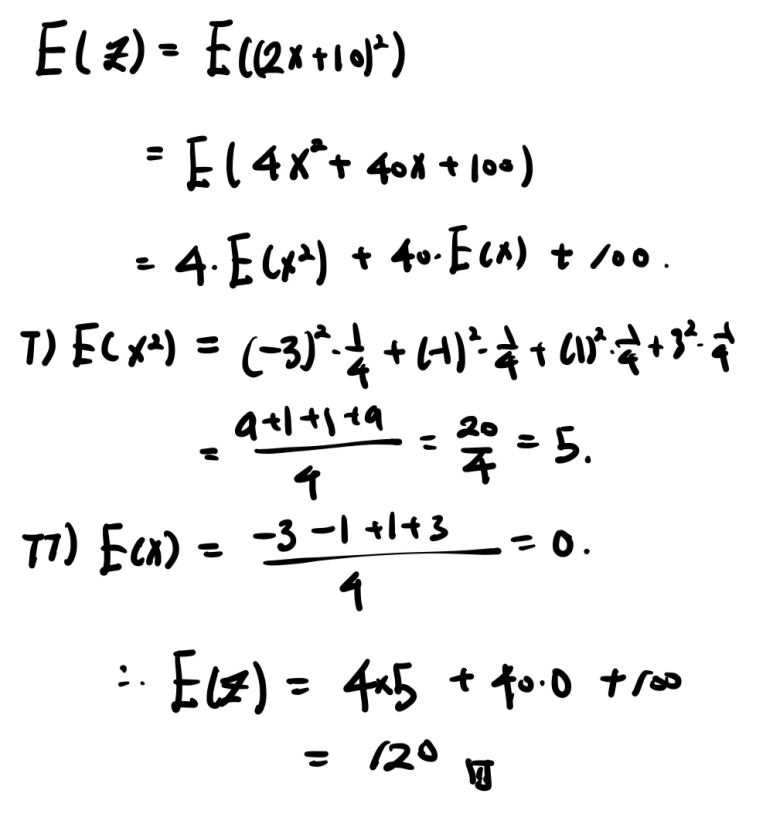 E(Z) = E((2x+10)²)
= E(4x²+ 40x + 100)
= 4·E(x²) + 40·E(x) + 100.
I) E(x²) = (-3)²·1/4 + (-1)²·1/4 + (1)²·1/4 + 3²·1/4
= (9+1+1+9)/4 = 20/4 = 5.
II) E(x) = (-3-1+1+3)/4 = 0.
∴ E(Z) = 4×5 + 40·0 + 100
= 120